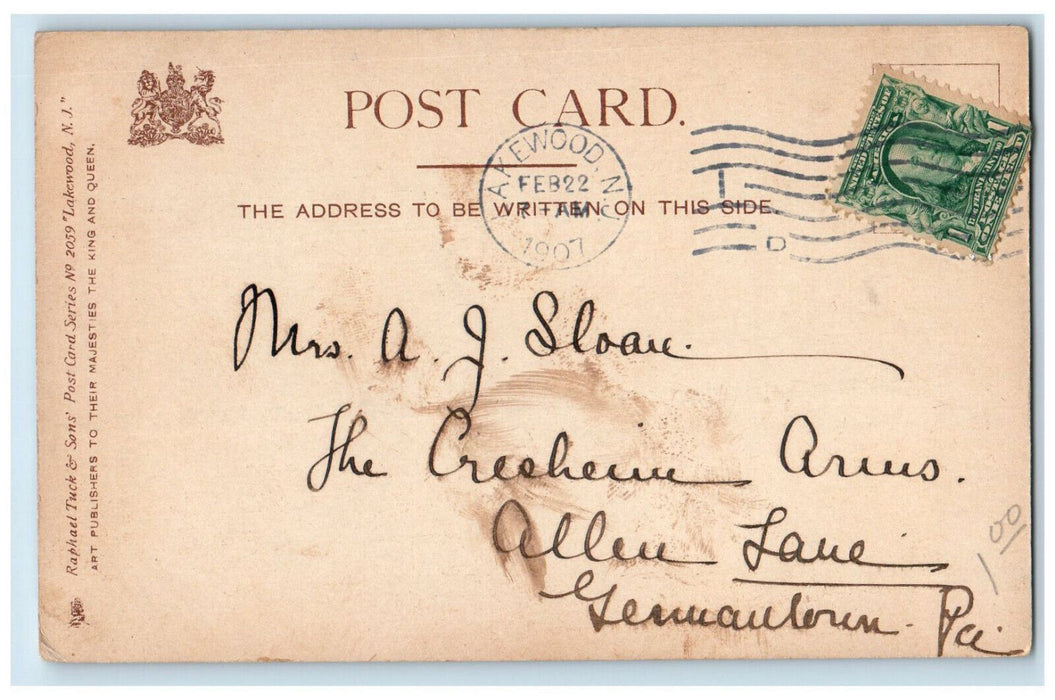 POST CARD.
THE ADDRESS TO BE WRITTEN ON THIS SIDE.
LAKEWOOD, N.J.
FEB 22
AM
1907
Mrs. A. J. Sloan.
The Cresheim Arms.
Allen Lane
Germantown. Pa.
1 00
Raphael Tuck & Sons' Post Card Series No 2059 "Lakewood, N. J."
ART PUBLISHERS TO THEIR MAJESTIES THE KING AND QUEEN.
D